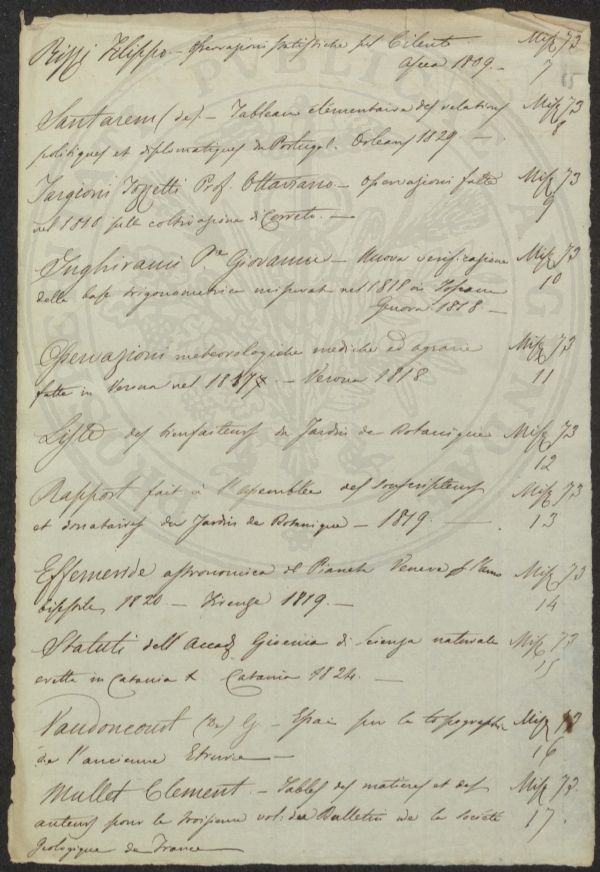 Rizzi Filippo - Osservazioni statistiche sul Cilento. Misc 73
1809. - 7
Santarem (de) - Tableau elementaire des relations Misc 73
politiques et diplomatiques du Portugal. Orleans 1829 - 8
Targioni Tozzetti Prof. Ottaviano - Osservazioni fatte Misc 73
nel 1810 sulla coltivazione di Cerreto. - 9
Inghirami P.re Giovanni - Nuova verificazione Misc 73
della base trigonometrica misurata nel 1818 in Toscana 10
Genova 1818 -
Osservazioni meteorologiche mediche ed agrarie Misc 73
fatte in Verona nel 1817 - Verona 1818 11
Liste des bienfaiteurs du Jardin de Botanique Misc 73
12
Rapport fait à l'assemblée des souscripteurs Misc 73
et donataires du Jardin de Botanique - 1819. - 13
Effemeride astronomica del Pianeta Venere p. l'anno Misc 73
bissestile 1820 - Firenze 1819. - 14
Statuti dell'Accad. Gioenia di scienze naturale Misc 73
eretta in Catania Catania 1824. - 15
Vaudoncourt (De) G. - Essai sur la topographie Misc 73
de l'ancienne Etrurie - 16
Mullet Clement - Tables des matieres et des Misc 73
auteurs pour le troisieme vol: du Bulletin de la société 17.
Geologique de France